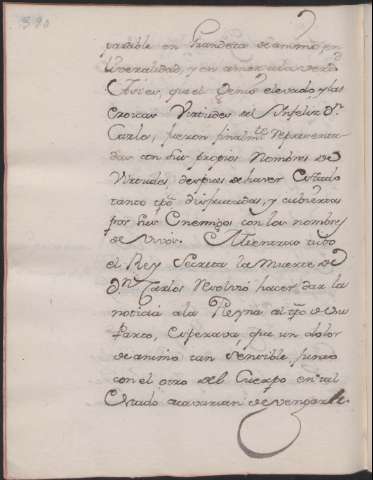 390
parable en Grandeza de animo, en
liveralidad, y en amor a la verd.d
Assies, que el Genio elevado, y las
eroicas Virtudes del Infeliz D.n
Carlos, fueron finalm.te representa-
das con sus propios nombres de
Virtudes, despues de haver estado
tanto tpo disfrazadas, y cubiertas
por sus enemigos con los nombres
de Vicios.
el Rey Secreta la Muerte de
D.n Carlos resolvió hacer dar la
noticia a la Reyna al tpo de su
Parto, esperava que un dolor
de animo tan sensible junto
con el otro del Cuerpo en tal
Estado acavarian de vengarle.